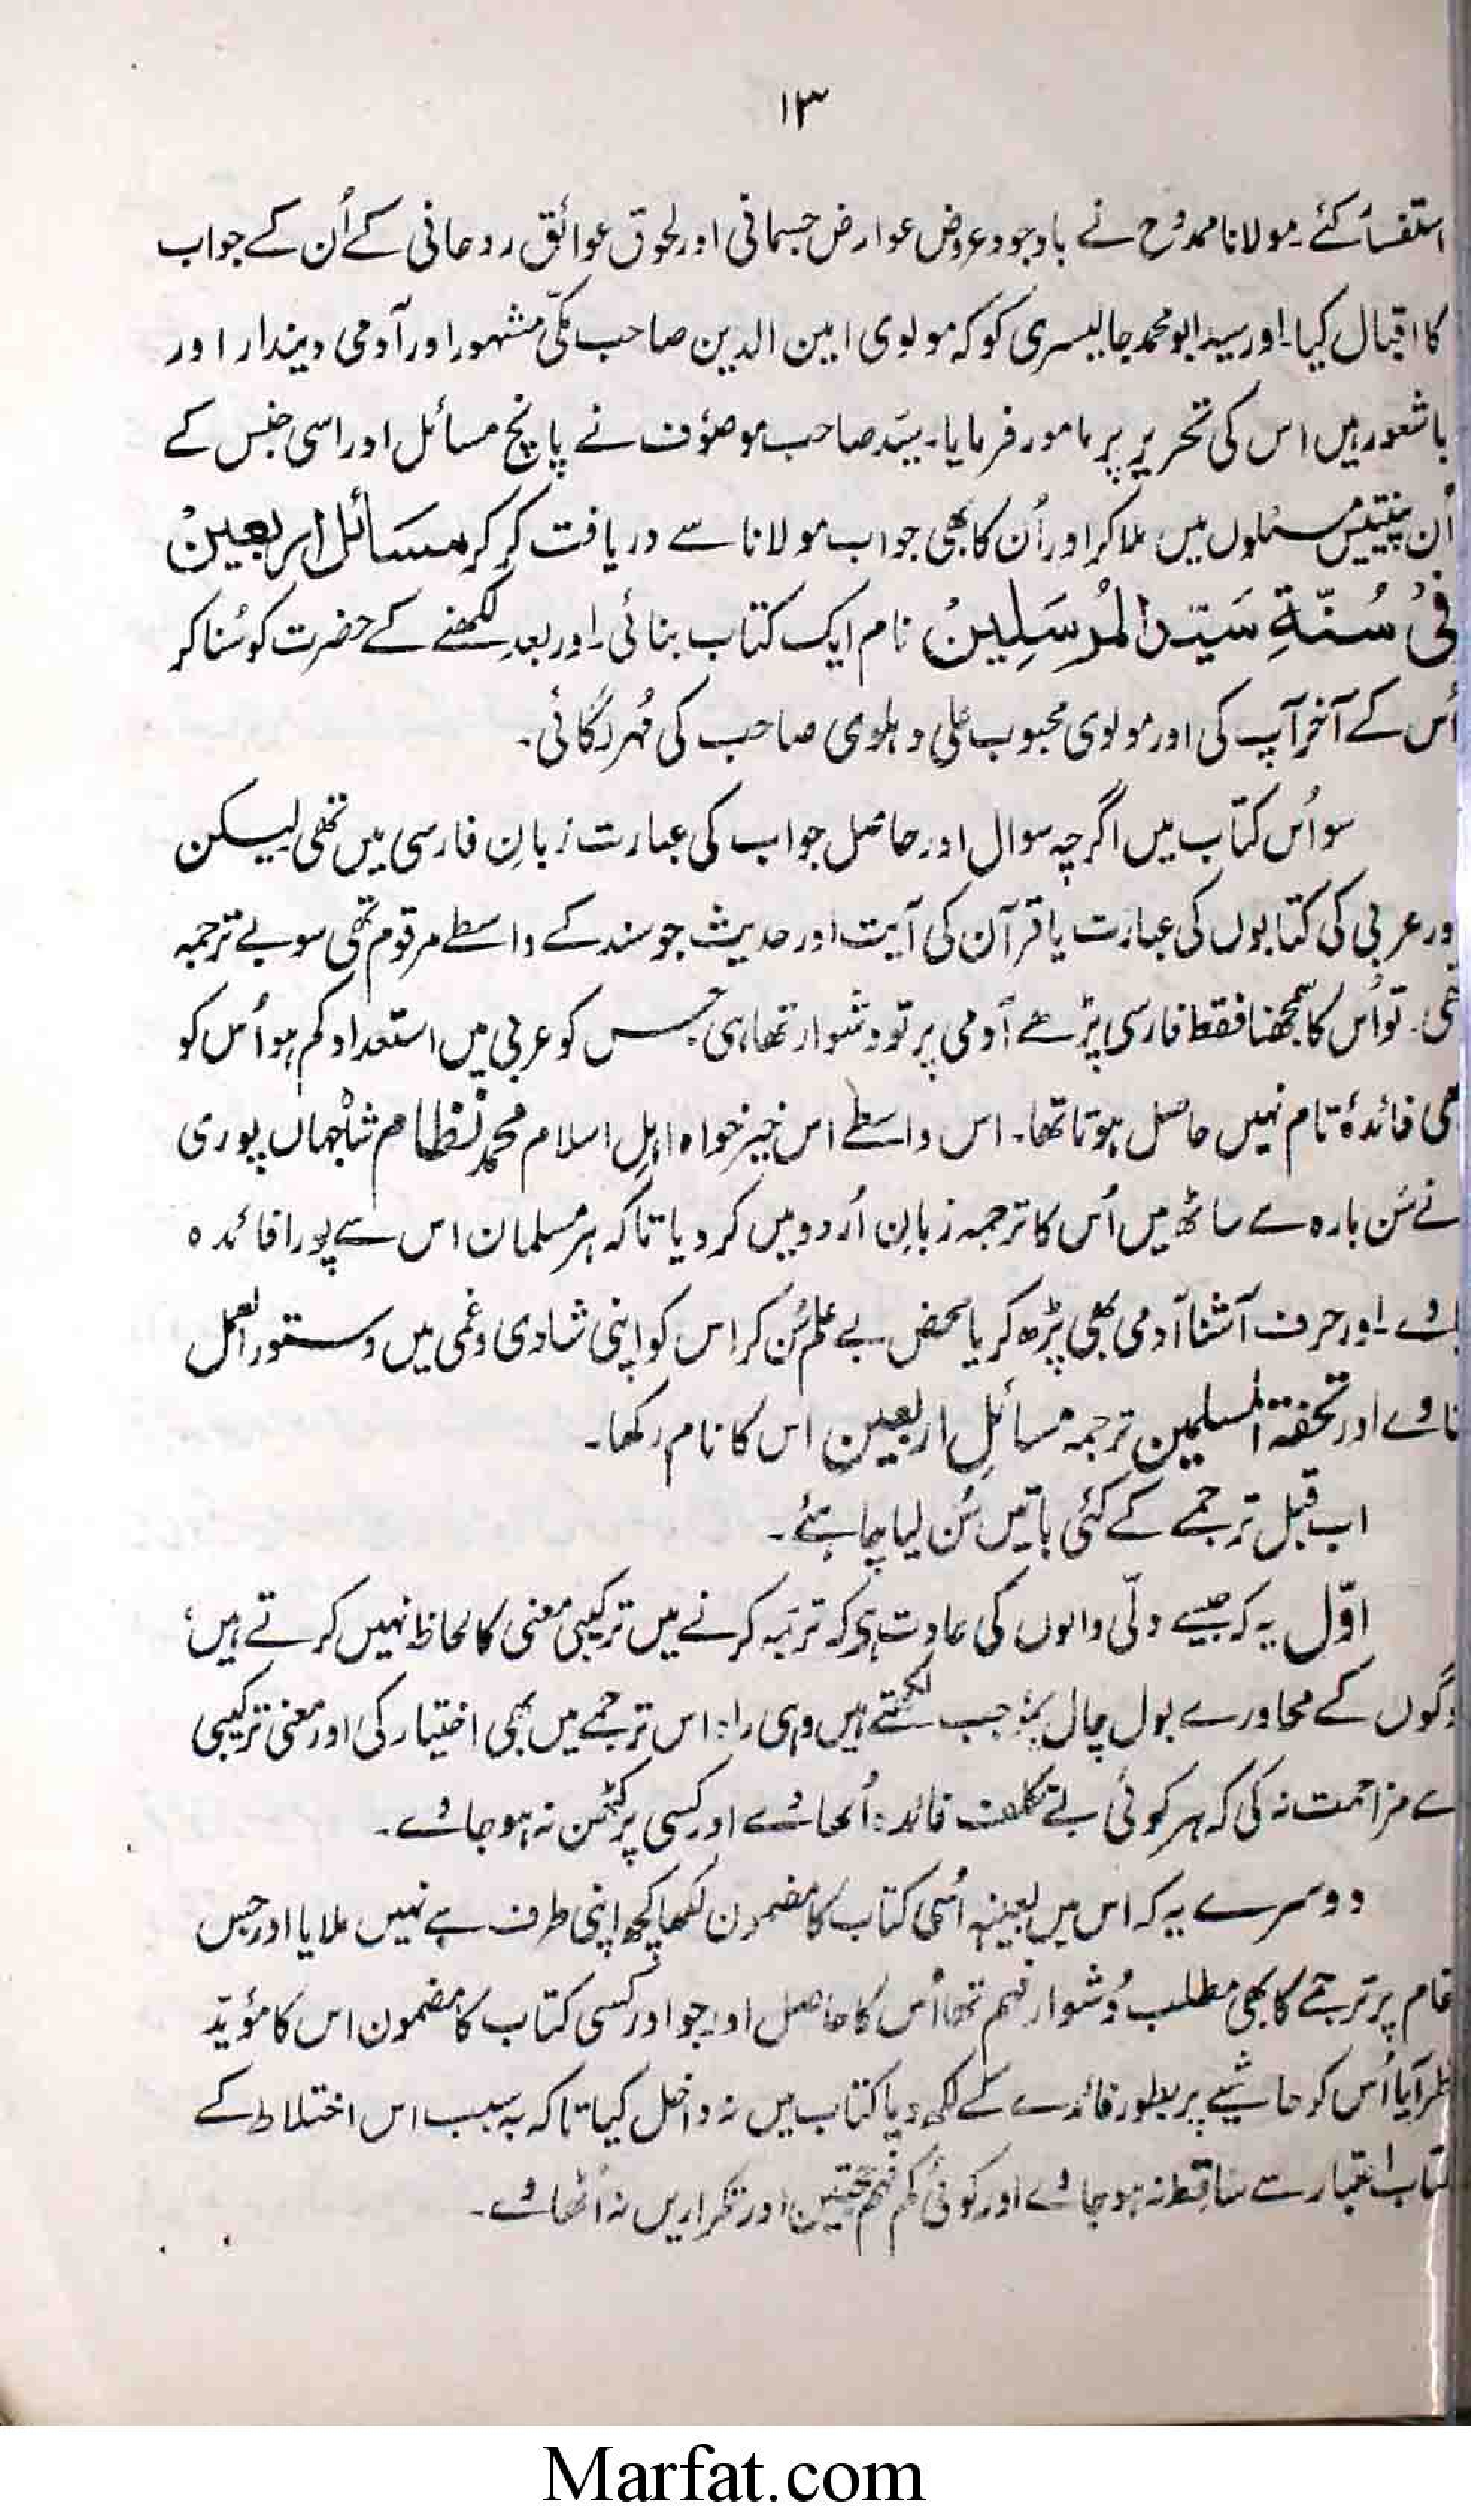 ۱۳
استفسأ کئے۔ مولانا ممدوح نے باوجود عروض عوارض جسمانی اور لحوق عوائق روحانی کے اُن کے جواب
کا اقبال کیا۔ اور سید ابو محمد جالیسری کو کہ مولوی امین الدین صاحب مکّی مشہور اور آدمی دیندار اور
باشعور ہیں اس کی تحریر پر مامور فرمایا۔ سیّد صاحب موصوف نے پانچ مسائل اور اسی جنس کے
اُن پینتیس مسئلوں میں ملا کر اور اُن کا بھی جواب مولانا سے دریافت کر کر مسَائل اربعین
فی سُنّۃِ سَیّد المُرسَلِین نام ایک کتاب بنائی۔ اور بعد لکھنے کے حضرت کو سُنا کر
اُس کے آخر آپ کی اور مولوی محبوب علی دہلوی صاحب کی مُہر لگائی۔
سو اُس کتاب میں اگرچہ سوال اور حاصل جواب کی عبارت زبانِ فارسی میں تھی لیکن
ور عربی کی کتابوں کی عبارت یا قرآن کی آیت اور حدیث جو سند کے واسطے مرقوم تھی سو بے ترجمہ
تھی۔ تو اُس کا سمجھنا فقط فارسی پڑھے آدمی پر تو دشوار تھا ہی جس کو عربی میں استعداد کم ہو اُس کو
بھی فائدۂ تام نہیں حاصل ہوتا تھا۔ اس واسطے اس خیر خواہ اہلِ اسلام محمد نظام شاہجہاں پوری
نے سَن بارہ سے ساٹھ میں اُس کا ترجمہ زبانِ اُردو میں کر دیا تاکہ ہر مسلمان اس سے پورا فائدہ
اوے۔ اور حرف آشنا آدمی بھی پڑھ کر یا محض بے علم سُن کر اس کو اپنی شادی و غمی میں دستور العمل
ناوے اور تحفۃ المسلمین ترجمہ مسائلِ اربعین اس کا نام رکھا۔
اب قبل ترجمے کے کئی باتیں سُن لیا چاہئے۔
اوّل یہ کہ جیسے دلّی والوں کی عادت ہی کہ ترجمہ کرنے میں ترکیبی معنی کا لحاظ نہیں کرتے ہیں،
وگوں کے محاورے بول چال بموجب لکھتے ہیں وہی راہ اس ترجمے میں بھی اختیار کی اور معنی ترکیبی
سے مزاحمت نہ کی کہ ہر کوئی بے تکلف فائدہ اُٹھاوے اور کسی پر کٹھن نہ ہو جاوے۔
دوسرے یہ کہ اس میں بعینہٖ اُسی کتاب کا مضمون لکھا کچھ اپنی طرف سے نہیں ملایا اور جس
مقام پر ترجمے کا بھی مطلب دُشوار فہم تھا اُس کا حاصل اور جو اور کسی کتاب کا مضمون اس کا مؤیّد
نظر آیا اُس کو حاشیے پر بطور فائدے کے لکھ دیا کتاب میں نہ داخل کیا تاکہ بہ سبب اس اختلاط کے
کتاب اعتبار سے ساقط نہ ہو جاوے اور کوئی کم فہم حجتیں اور تکراریں نہ اُٹھاوے۔
Marfat.com